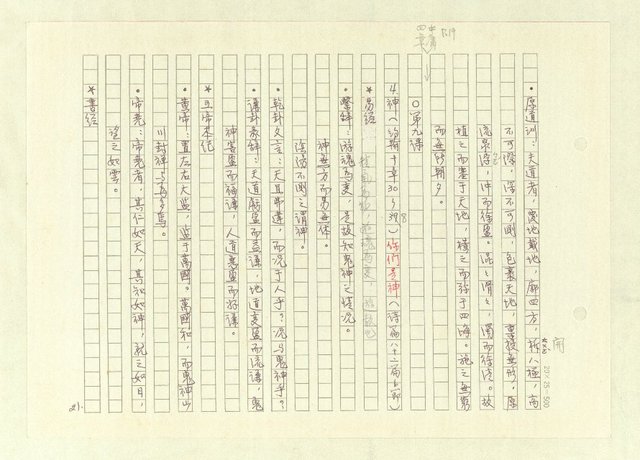 • 原道訓：夫道者，覆地載地，廓四方，柝八極，高
不可際，深不可測，包裹天地，稟授無形，原
流泉浡，沖而徐盈。混混滑滑，濁而徐清。故
植之而塞于天地，橫之而彌于四海。施之無窮
而無所朝夕。
○第九課
4. 神（約翰十章30，38）你們是神（詩篇八十二篇
* 易經
• 繫辭：游魂為變，是故知鬼神之情況。
神無方而易無体。
陰陽不測之謂神。
• 乾卦文言：天且弗違，而況于人乎？況乎鬼神乎？
• 謙卦彖辭：天道虧盈而益謙，地道變盈而流謙，鬼
神害盈而福謙，人道惡盈而好謙。
* 五帝本紀
• 黃帝：置左右大監，監于萬國。萬國和，而鬼神山
川封禪与為多焉。
• 帝堯：帝堯者，其仁如天，其知如神，就之如日，
望之如雲。
* 書經
21.